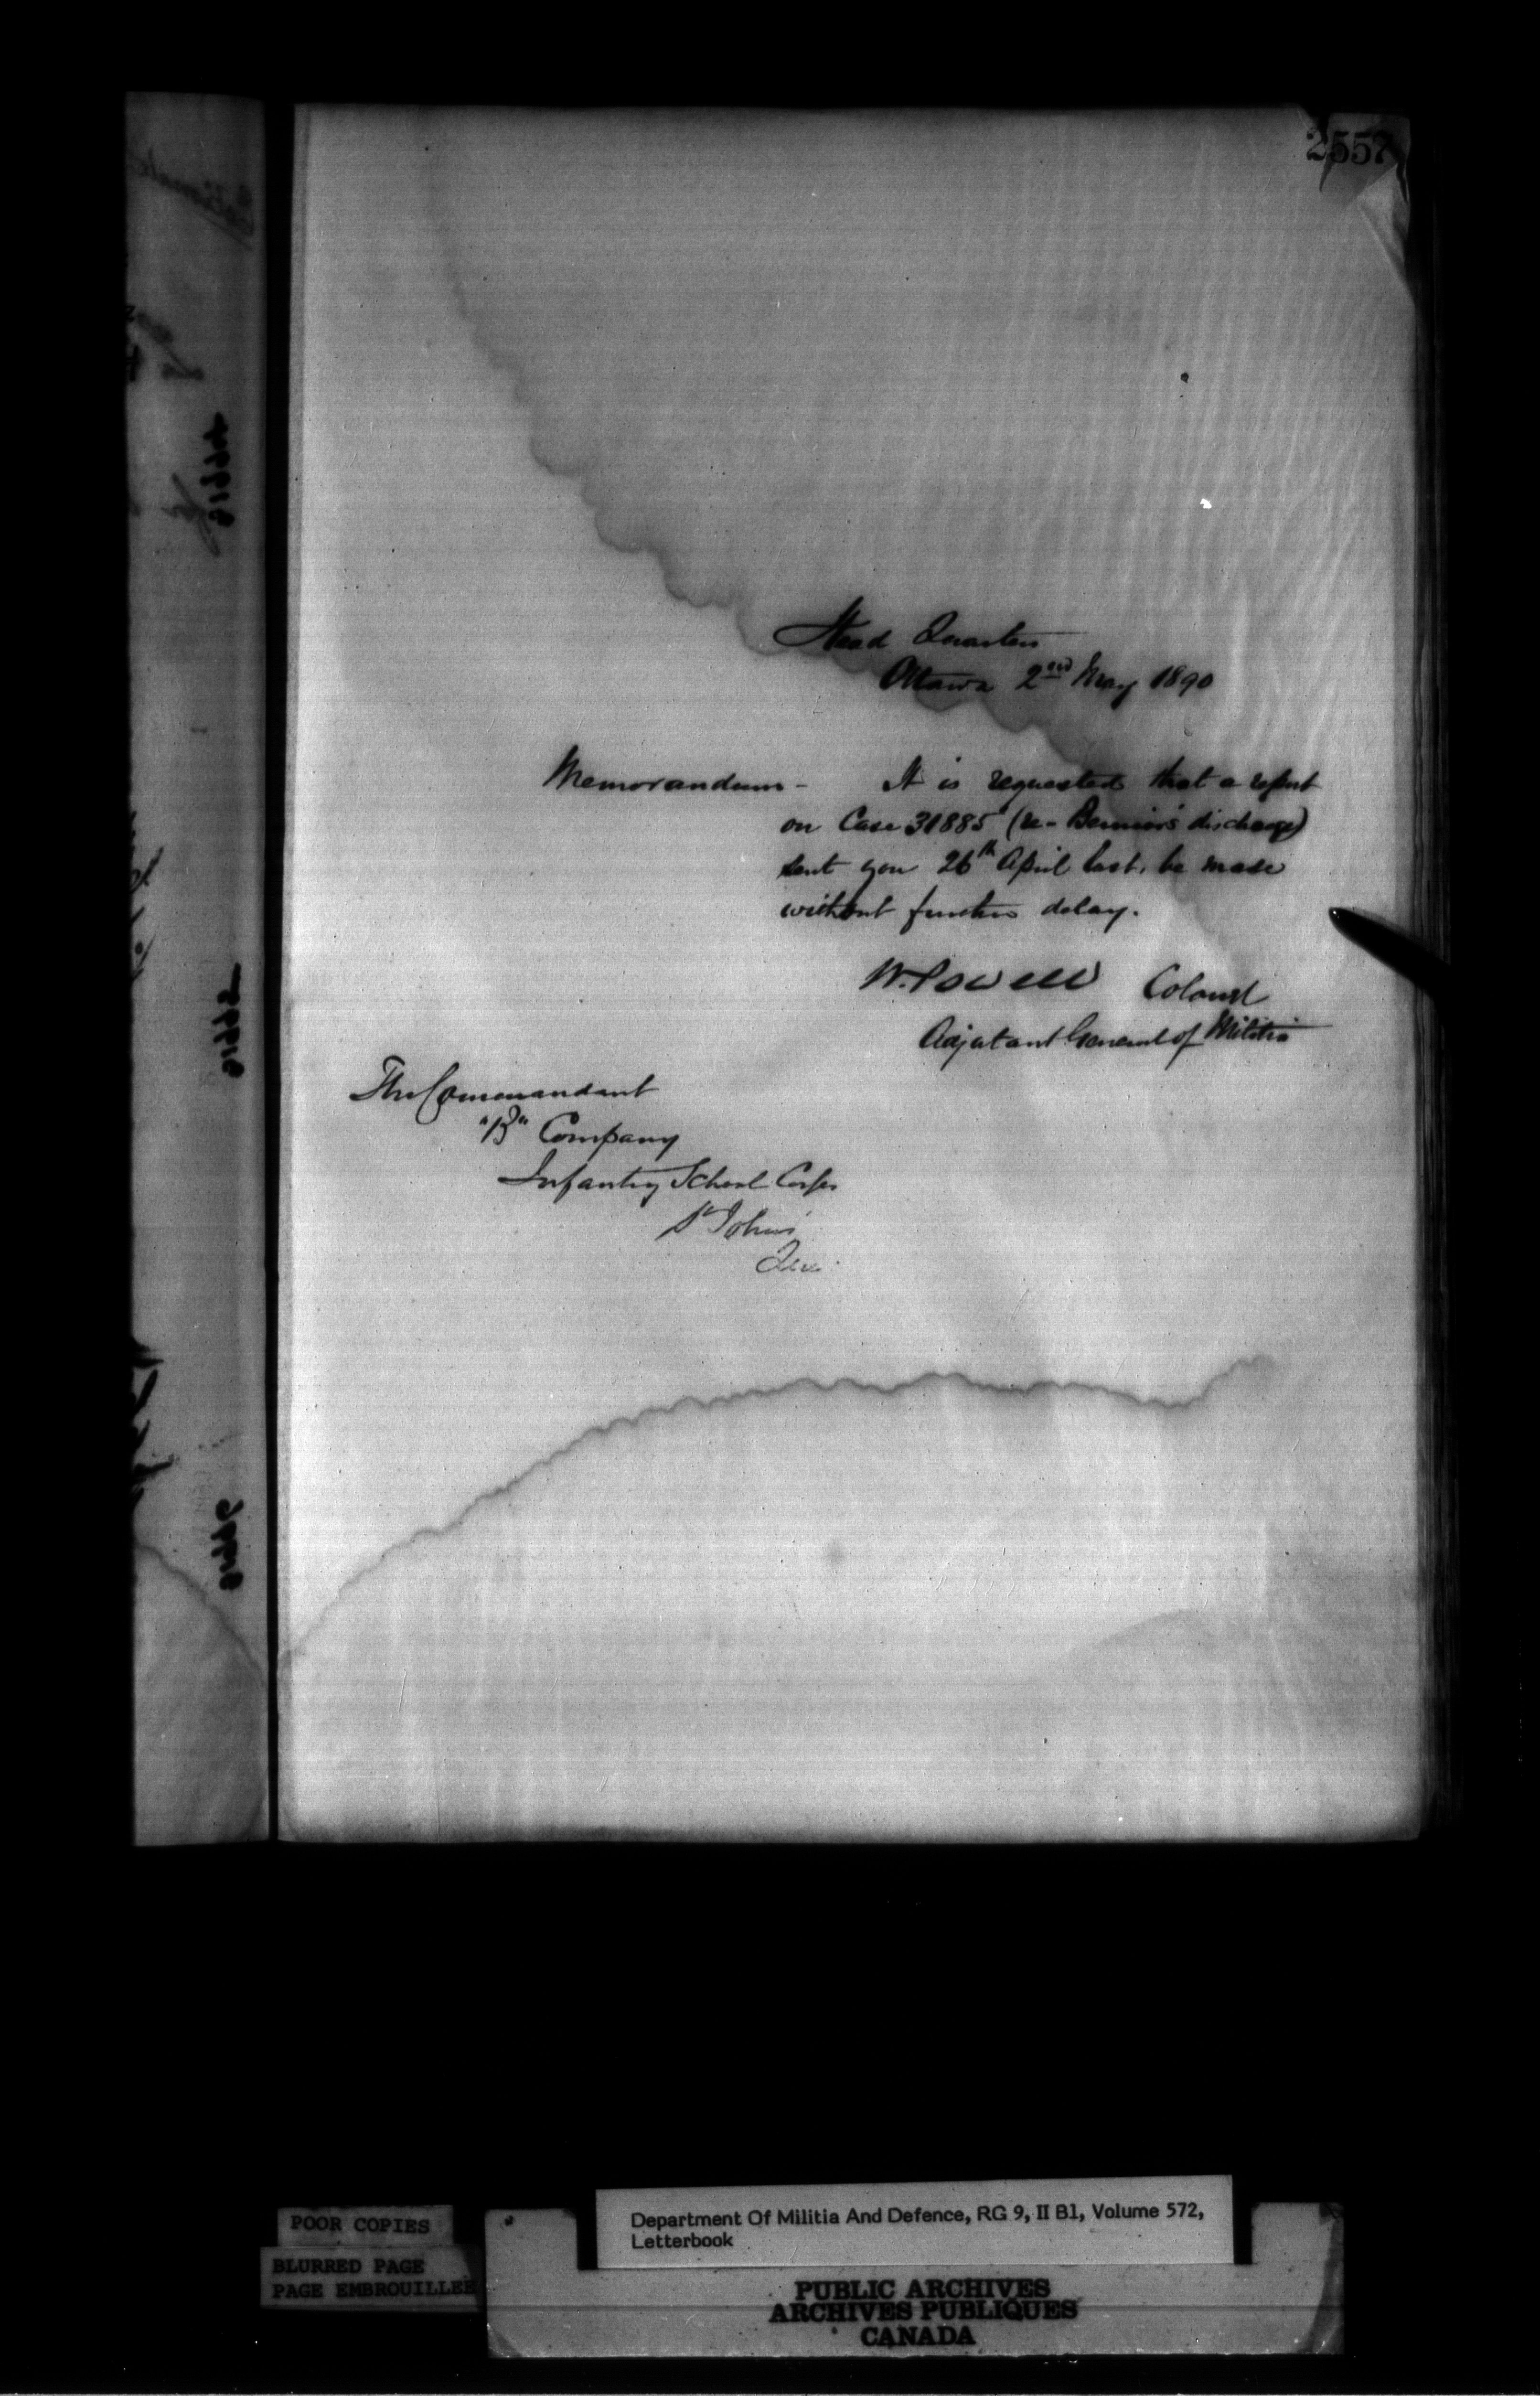 2557
Head Quarters
Ottawa 2nd May 1890
Memorandum - It is requested that a report
on Case 31885 (re - Bernier's discharge)
sent you 26th April last, be made
without further delay.
W. Powell Colonel
Adjutant General of Militia
The Commandant
"B" Company
Infantry School Corps
St Johns
Que.
POOR COPIES
BLURRED PAGE
PAGE EMBROUILLEE
Department Of Militia And Defence, RG 9, II B1, Volume 572,
Letterbook
PUBLIC ARCHIVES
ARCHIVES PUBLIQUES
CANADA